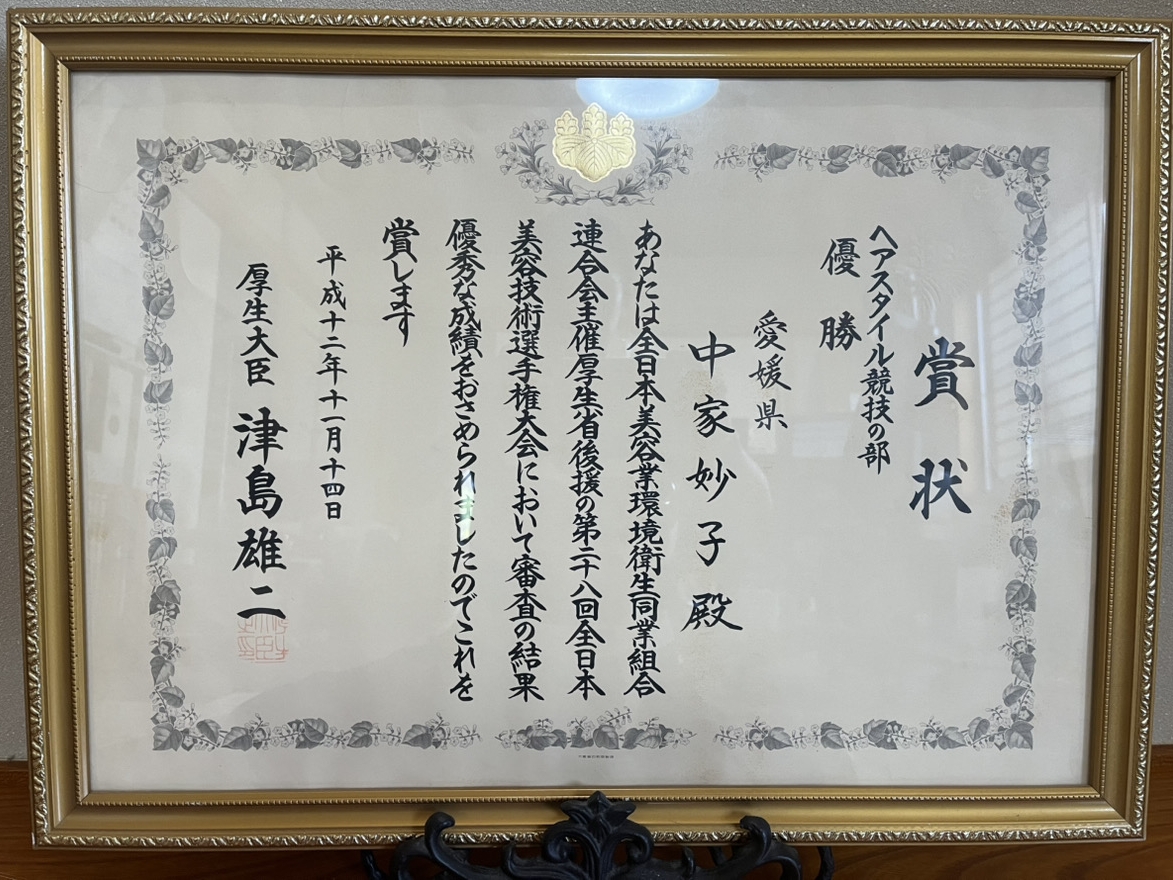 賞状
ヘアスタイル競技の部
優勝
愛媛県
中家妙子殿
あなたは全日本美容業環境衛生同業組合
連合会主催厚生省後援の第二十八回全日本
美容技術選手権大会において審査の結果
優秀な成績をおさめられましたのでこれを
賞します
平成十二年十一月十四日
厚生大臣 津島雄二